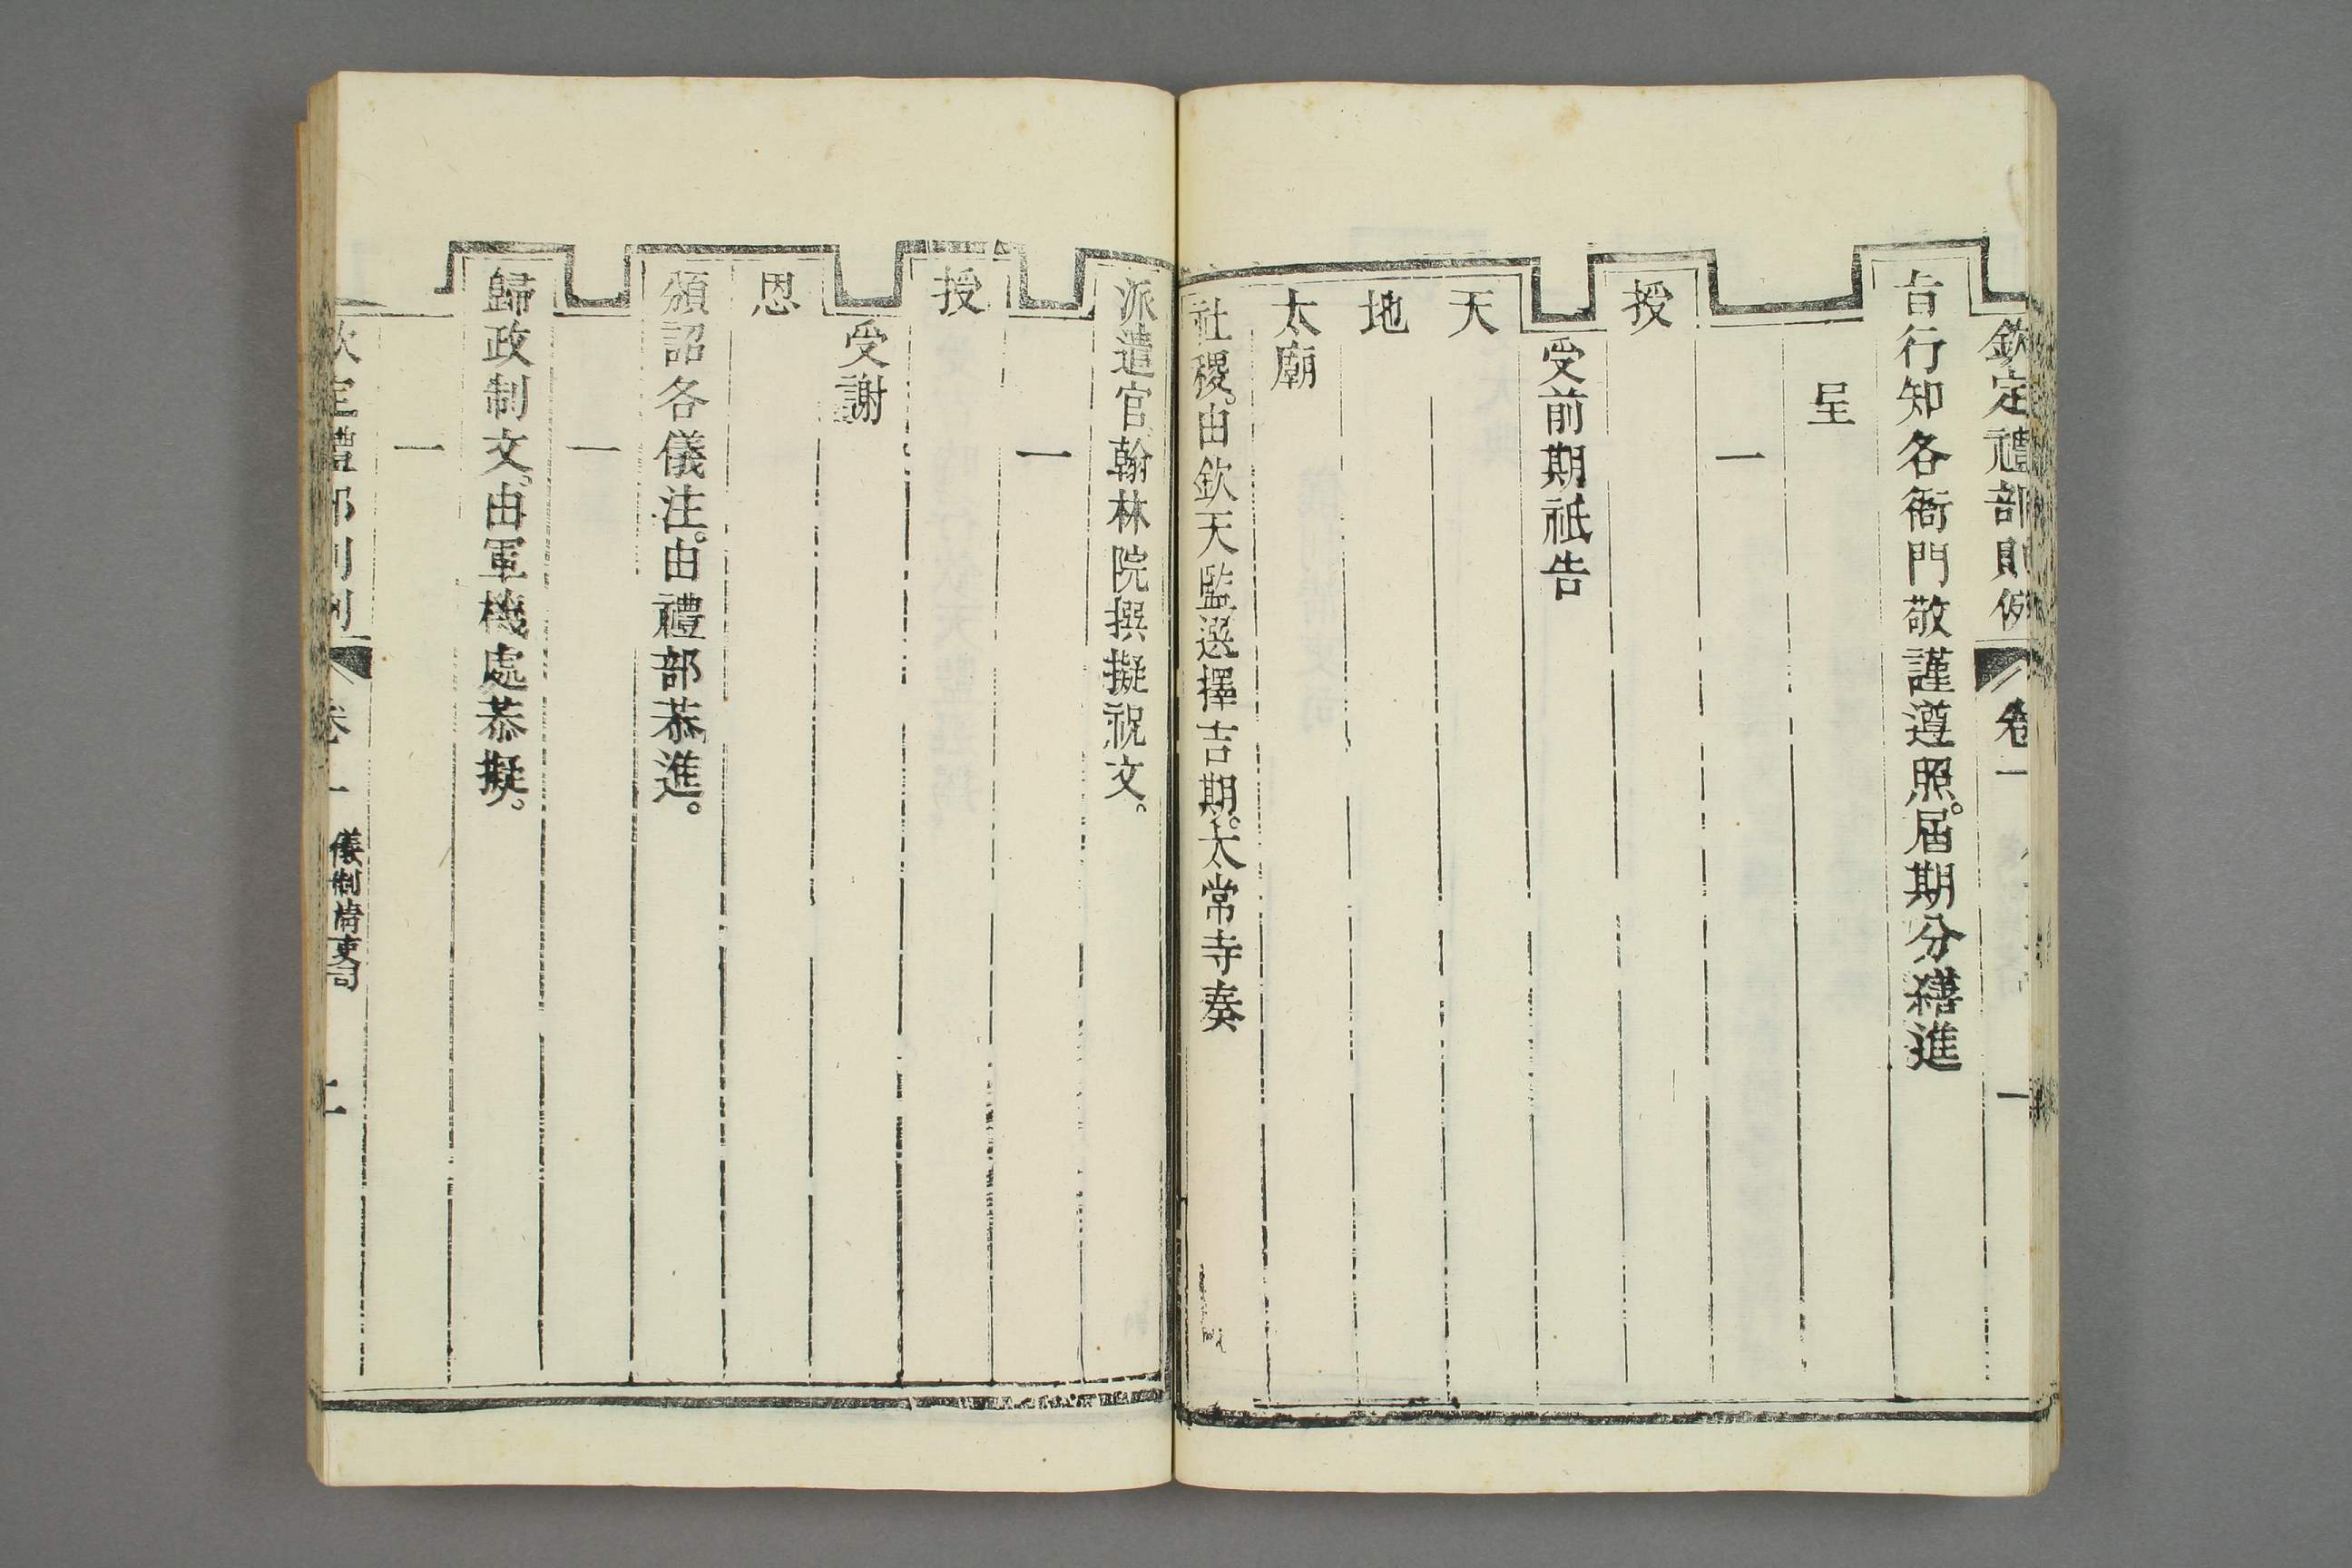 欽定禮部則例 卷一 一
旨行知各衙門敬謹遵照。届期分繕進
呈
一
授
受前期祇告
天
地
太廟
社稷。由欽天監選擇吉期。太常寺奏
派遣官。翰林院撰擬祝文。
一
授
受謝
恩
頒詔各儀注。由禮部恭進。
一
歸政制文。由軍機處恭擬。
一
欽定禮部則例 卷一 儀制清吏司 二